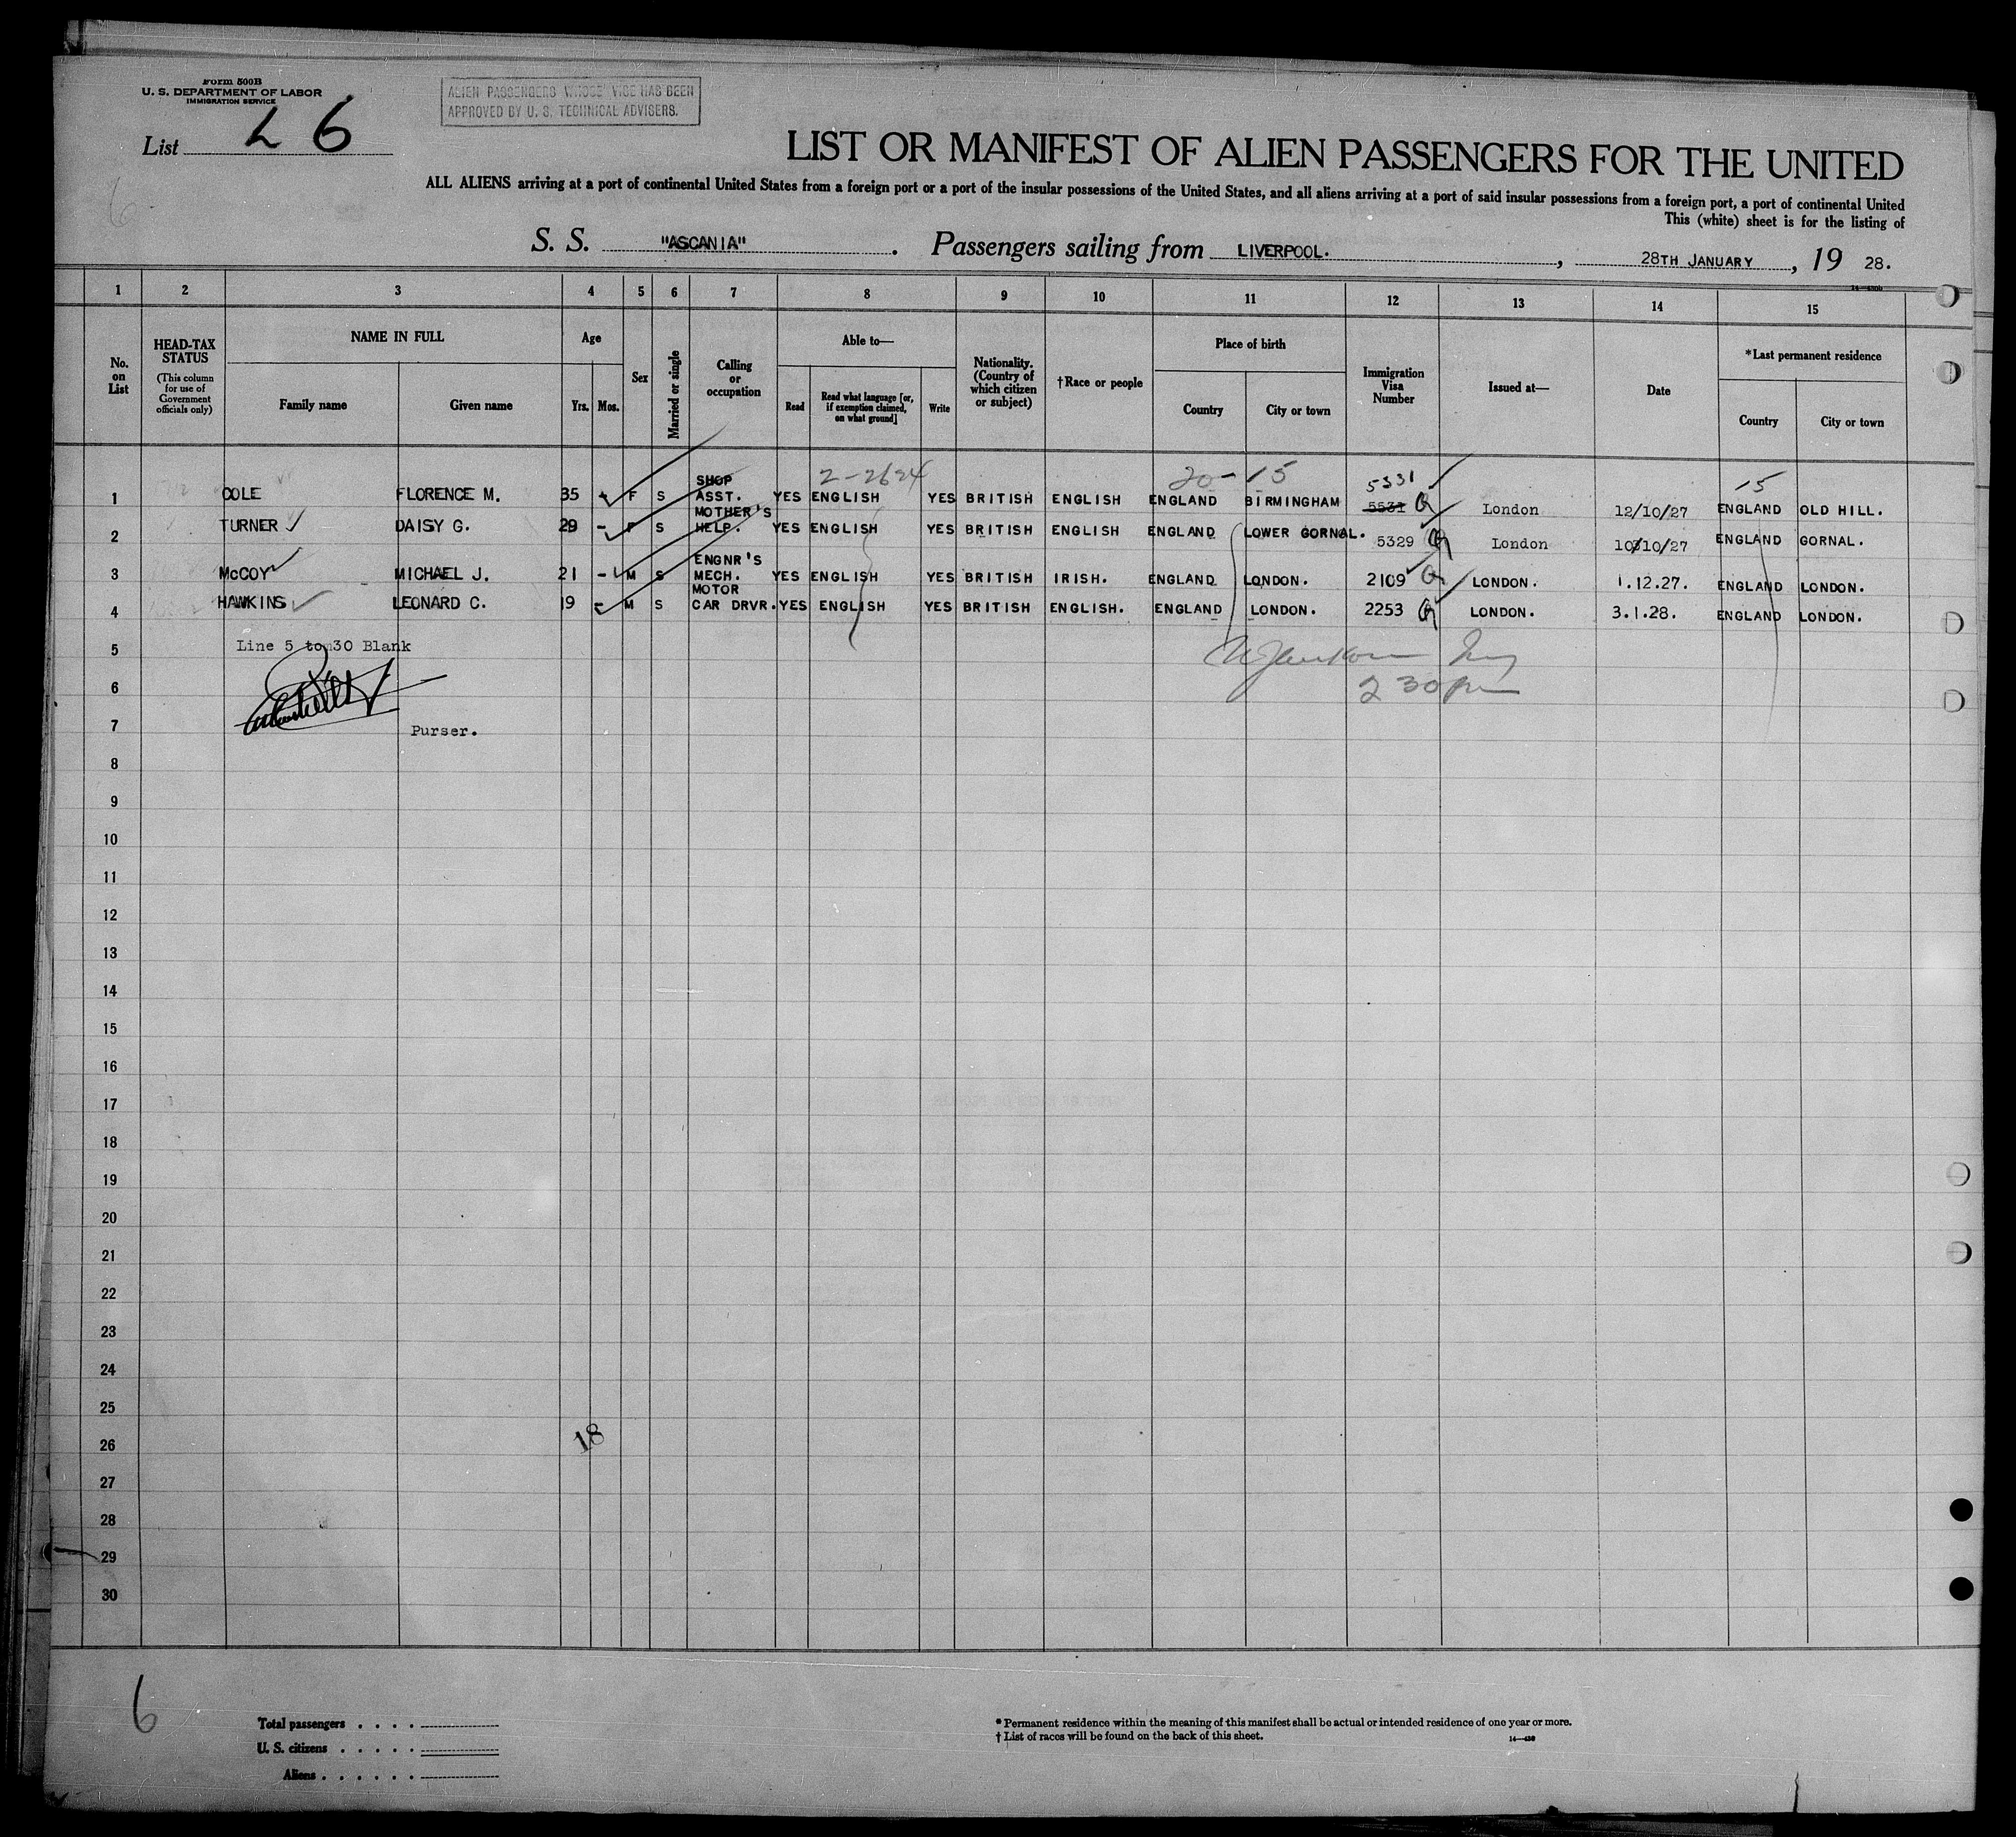 Form 500B
U. S. DEPARTMENT OF LABOR
IMMIGRATION SERVICE
ALIEN PASSENGERS WHOSE VISE HAS BEEN
APPROVED BY U. S. TECHNICAL ADVISERS.
List L 6
6
LIST OR MANIFEST OF ALIEN PASSENGERS FOR THE UNITED
ALL ALIENS arriving at a port of continental United States from a foreign port or a port of the insular possessions of the United States, and all aliens arriving at a port of said insular possessions from a foreign port, a port of continental United
This (white) sheet is for the listing of
S. S. "ASCANIA". Passengers sailing from LIVERPOOL., 28TH JANUARY, 19 28.
1 2 3 4 5 6 7 8 9 10 11 12 13 14 15
No. on List
HEAD-TAX STATUS
(This column for use of Government officials only)
NAME IN FULL
Family name Given name
Age
Yrs. Mos.
Sex
Married or single
Calling or occupation
Able to—
Read
Read what language [or, if exemption claimed, on what ground]
Write
Nationality. (Country of which citizen or subject)
†Race or people
Place of birth
Country City or town
Immigration Visa Number
Issued at—
Date
*Last permanent residence
Country City or town
2-2624 20-15 5331 15
1 COLE FLORENCE M. 35 - F S SHOP ASST. YES ENGLISH YES BRITISH ENGLISH ENGLAND BIRMINGHAM 5531 London 12/10/27 ENGLAND OLD HILL.
2 TURNER DAISY G. 29 - F S MOTHER'S HELP. YES ENGLISH YES BRITISH ENGLISH ENGLAND LOWER GORNAL. 5329 London 10/10/27 ENGLAND GORNAL.
3 McCOY MICHAEL J. 21 - M S ENGNR'S MECH. YES ENGLISH YES BRITISH IRISH. ENGLAND LONDON. 2109 LONDON. 1.12.27. ENGLAND LONDON.
4 HAWKINS LEONARD C. 19 - M S MOTOR CAR DRVR. YES ENGLISH YES BRITISH ENGLISH. ENGLAND LONDON. 2253 LONDON. 3.1.28. ENGLAND LONDON.
5 Line 5 to 30 Blank
6 2 30 pm
7 Purser.
8
9
10
11
12
13
14
15
16
17
18
19
20
21
22
23
24
25
26 18
27
28
29
30
6
Total passengers . . . .
U. S. citizens . . . . .
Aliens . . . . . .
* Permanent residence within the meaning of this manifest shall be actual or intended residence of one year or more.
† List of races will be found on the back of this sheet.